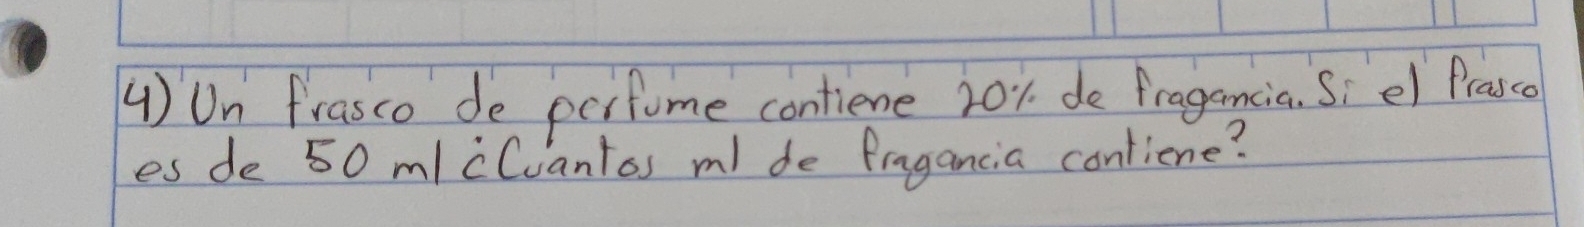 4) Un frasco de perfume contiene 20% de fragancia. Si el frasco
es de 50 ml ¿Cuantos ml de fragancia contiene?